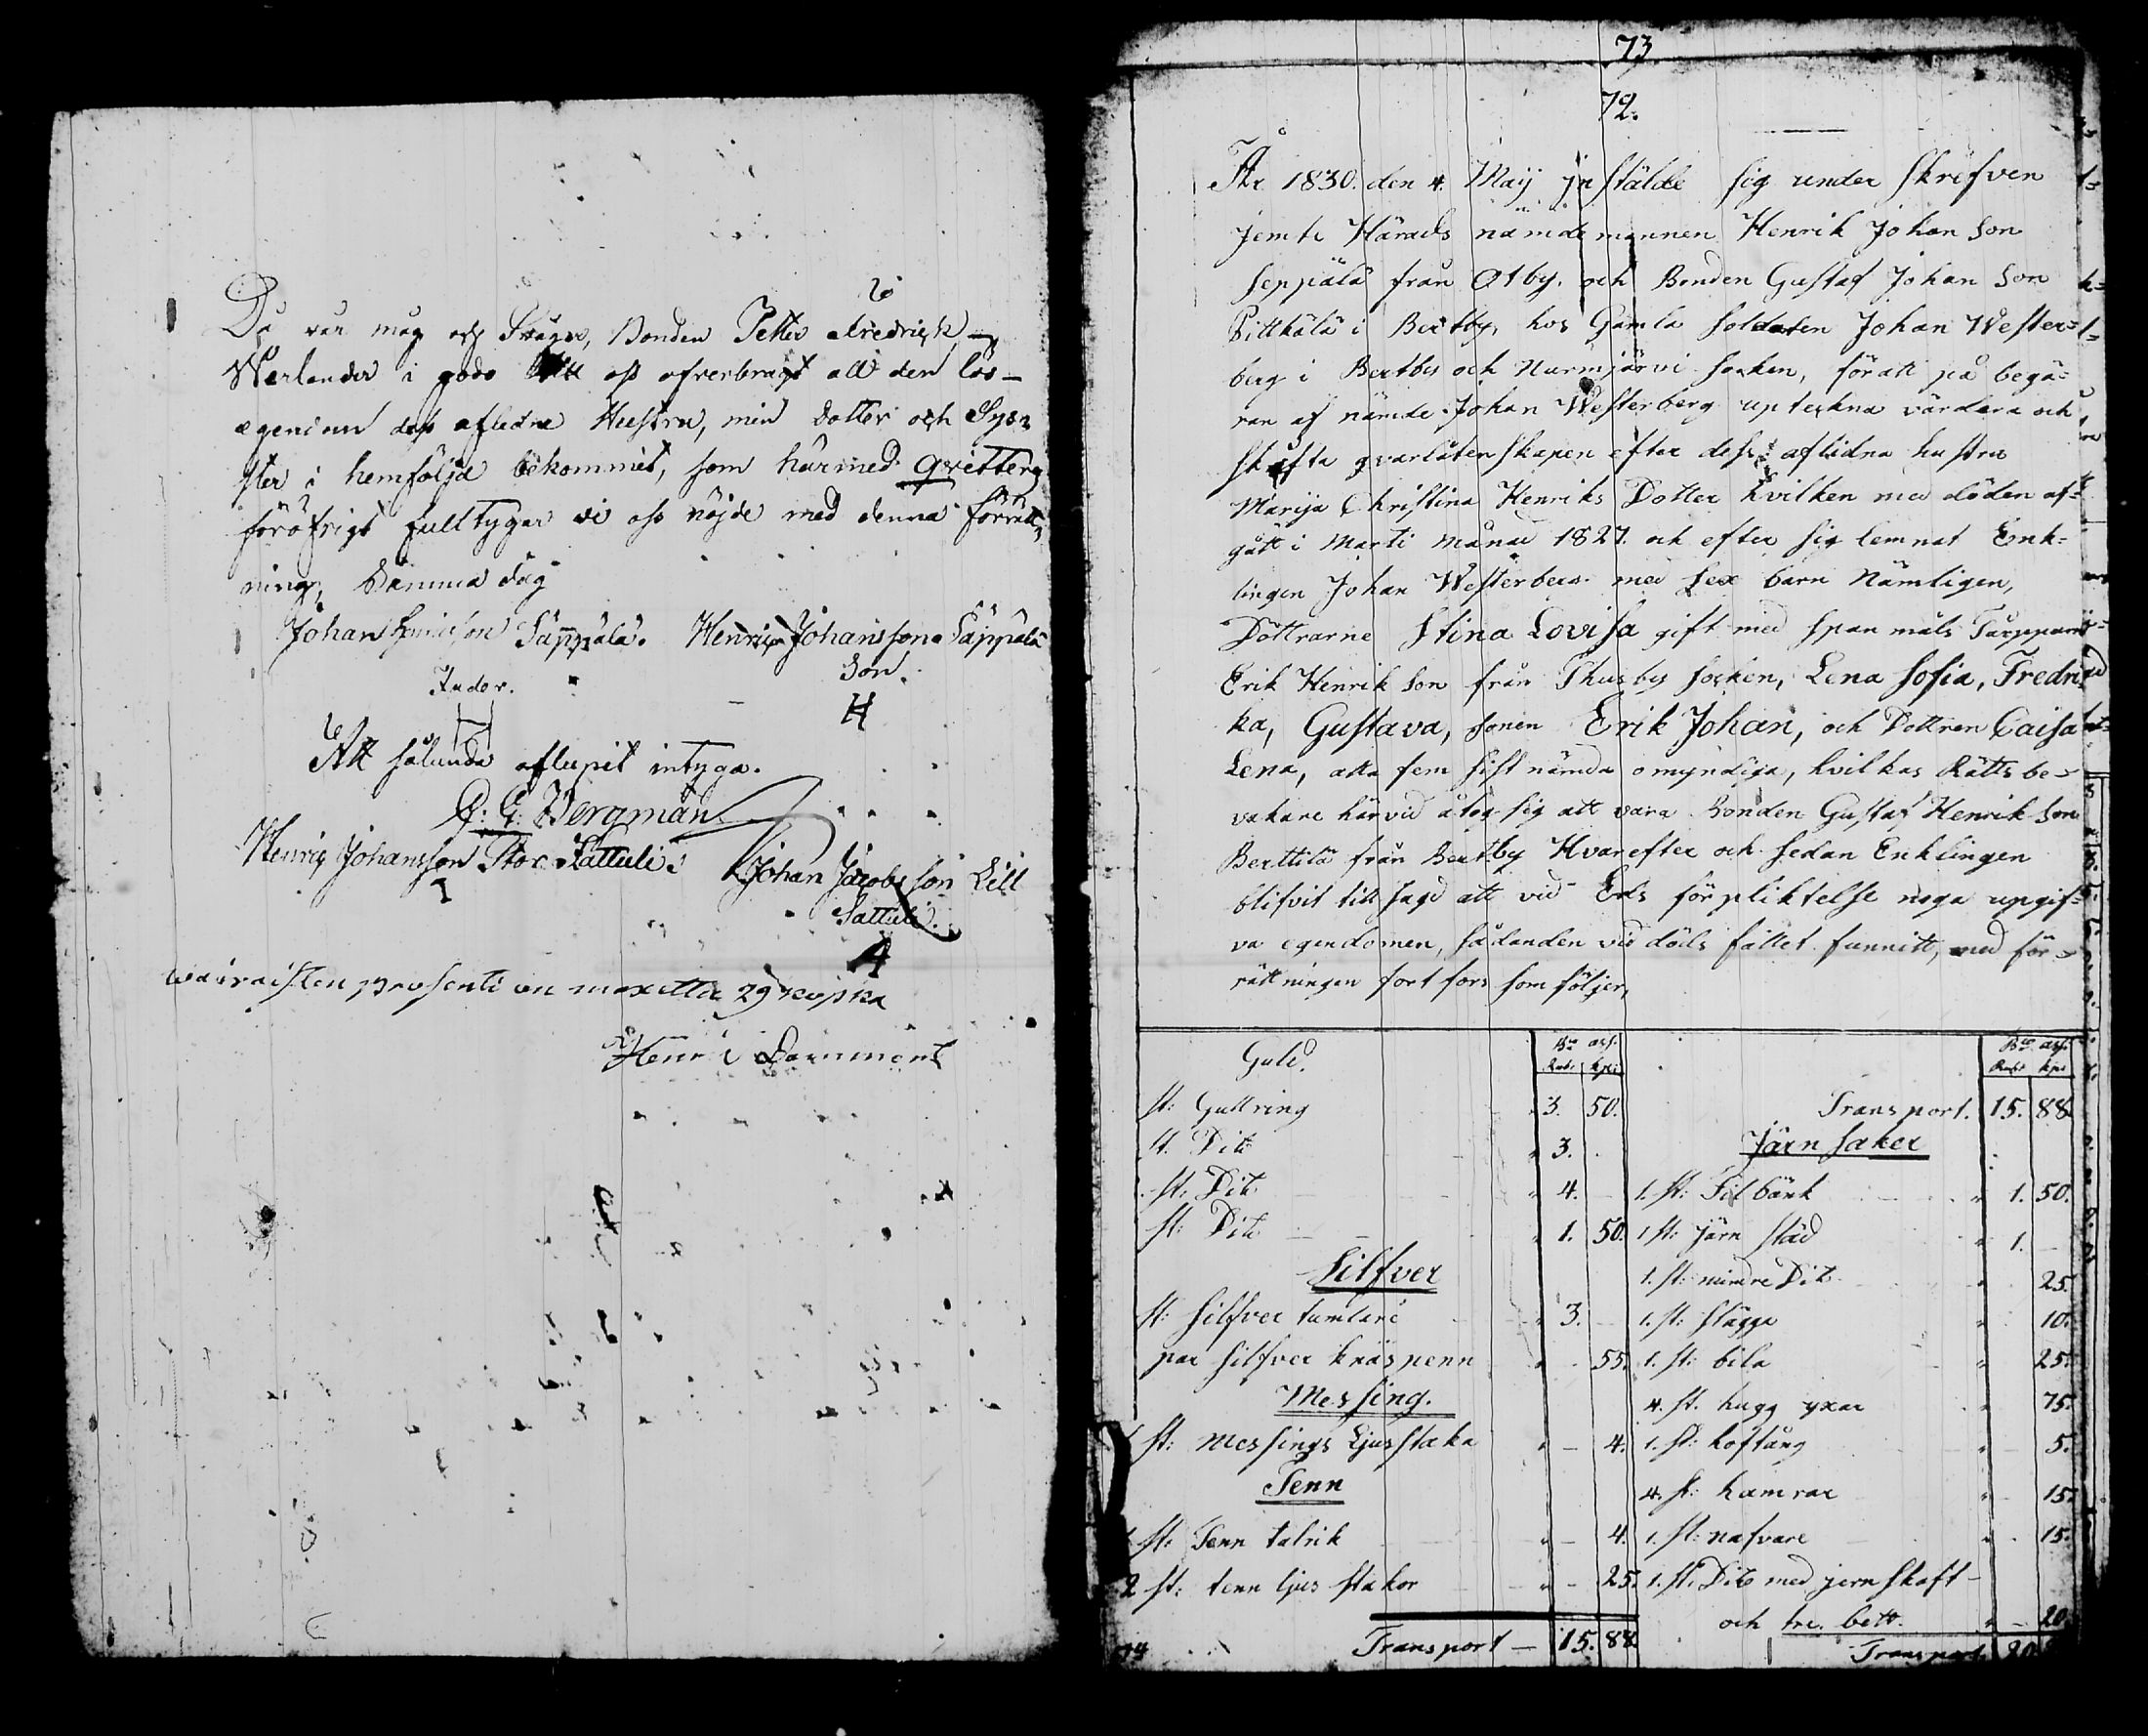 Då vår måg och Svåger, Bonden Petter Fredrick
Werlander i godo till oss öfverbragt all den lös-
egendom dess afledne Hustru, min dotter och Sys-
ster i hemfölja bekommit, som härmed qvitteras
föröfrigt fulltygar vi oss nöjde med denna förrätt-
ning, Samma dag
Johan Henricson Säppälä. Henrich Johansson Säppälä
Fader. Son.
Att sålunda aflupit intyga.
G: G: Bergman
Henric Johansson Stor Sattuli. Johan Jacobsson Lill
Sattuli.
waivaisten prosenti on maxettu 29 kopka
Henric
73
72.
År 1830. den 4. Maij instälde sig under skrefven
jemte Härads nämdemannen Henrik Johan Son
Seppälä från Otby. och Bonden Gustaf Johan Son
Pittkälä i Bertby, hos Gamla Soldaten Johan Wester-
berg i Bertby och Nurmjärvi socken, för att på begä-
ran af nämde Johan Westerberg upteckna värdera och
skifta qvarlåtenskapen efter dess aflidna hustru
Marija Christina Henriks Dotter hvilken med döden af-
gått i Marti månad 1827. och efter sig lemnat Enk-
lingen Johan Westerberg med sex barn Nämligen,
Döttrarne Stina Lovisa gift med Spanmåls Torpparen
Erik Henrik Son från Thusby socken, Lena Sofia, Fredri
ka, Gustava, sonen Erik Johan, och Dottren Caisa
Lena, alla fem sist nämda omyndiga, hvilkas Rätts be-
vakare härvid åtog sig att vara Bonden Gustaf Henrik Son
Berttilä från Bertby Hvarefter och sedan Enklingen
blifvit till sagd att vid Eds förpliktelse noga upgif-
va egendomen, sådanden vid döds fallet funnitt, med för-
rättningen fort fors som följer,
Guld. Bco ass. Rub. kpk
st: Gullring 3. 50.
st. Dito 3.
st. Dito 4.
st: Dito 1. 50.
Silfver
st: Silfver tumlare 3.
par silfver knäspenn 55.
Messing.
st: Messings Ljusstaka 4.
Tenn
st: Tenn talrik 4.
2 st: tenn ljus stakor 25.
Transport 15. 88.
Bco ass. Rubl kpk
Transport. 15. 88
Järn saker
1. st: Filbänk 1. 50.
1 st: Järn städ 1.
1. st: mindre Dito 25.
1. st: slägga 10.
1. st: bila 25.
4. st. hugg yxar 75.
1. st: hoftång 5.
4. st: hamrar 15.
1. st: nafvare 15.
1. st. Dito med jern skaft
och tre bett. 20.
Transport 20.